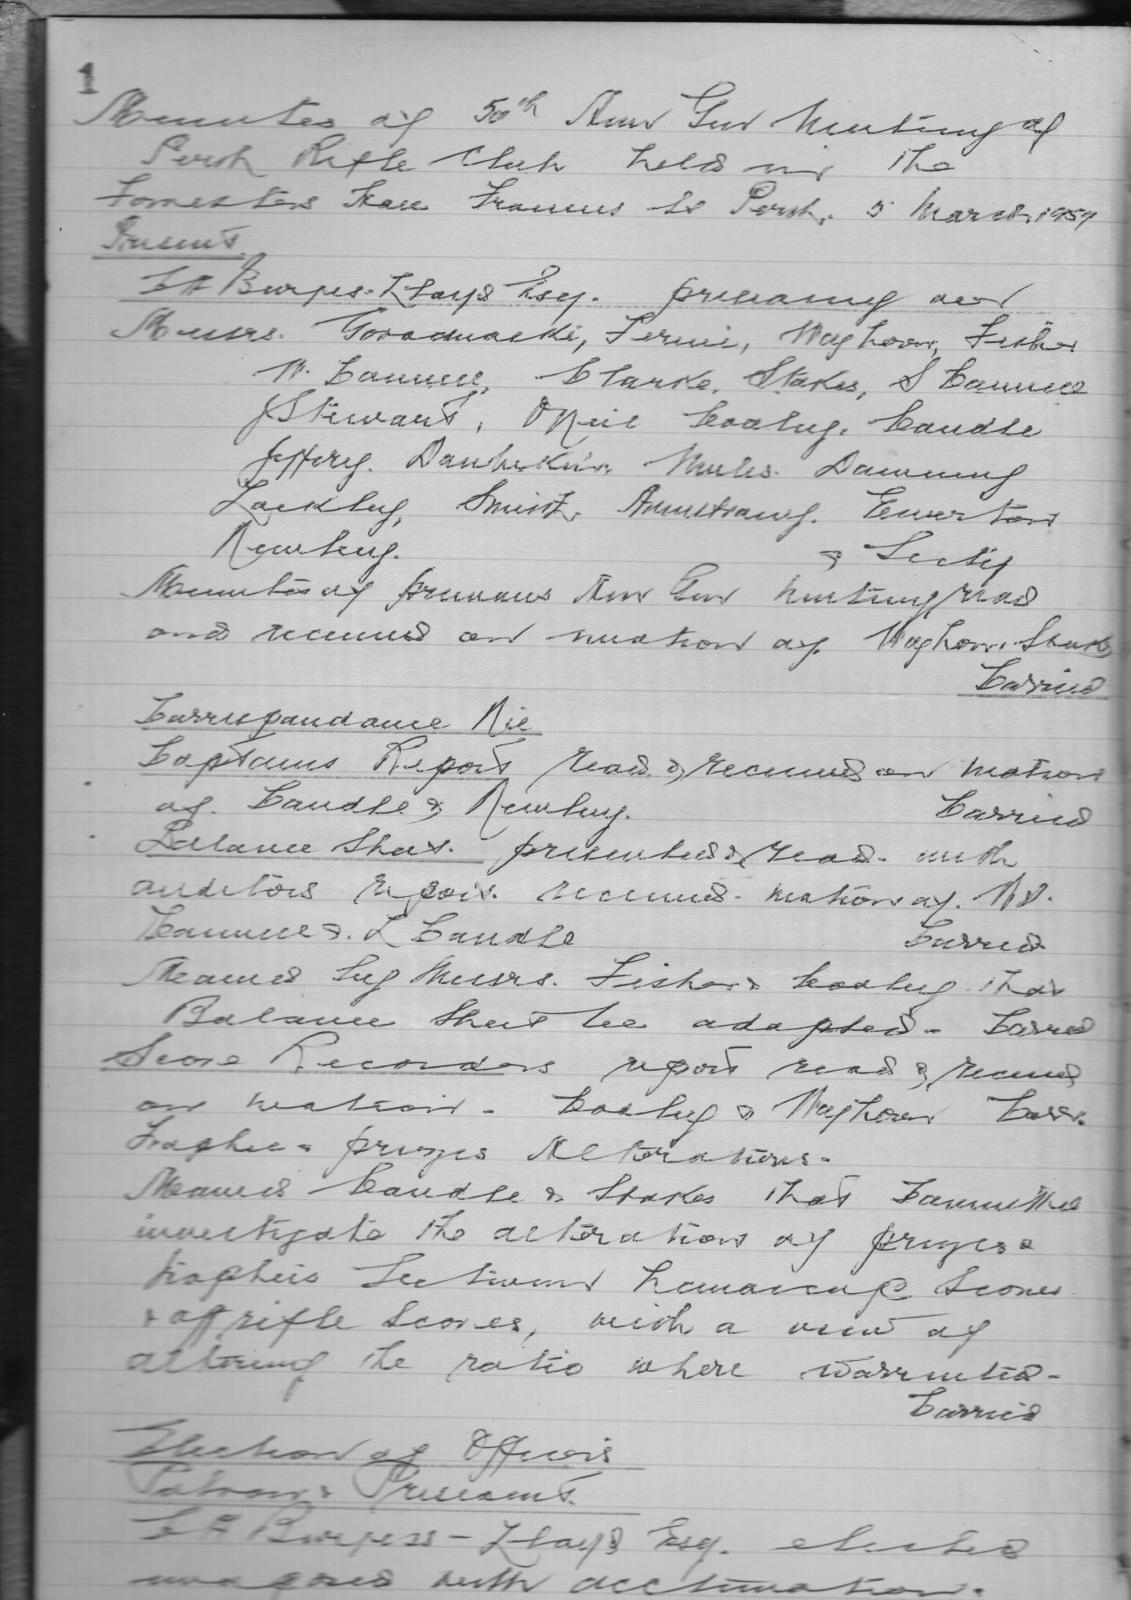 1
Minutes of 50th Ann Gen Meeting of
Perth Rifle Club held in the
Forresters Hall Francis St Perth. 5 March 1959
Present
C A Burgess-Lloyd Esq. presiding and
Messrs. Fernie, Waghorn, Fisher
W. Cannell, Clarke, Stokes, S Cannell
J Stewart, O'Neil Cooley, Caudle
Jeffery. Miles. Downing
Smith, Armstrong.
Newbey. & Secty
Minutes of previous Ann Gen Meeting read
and received on motion of Waghorn,
Carried
Correspondance Nil
Captains Report read & received on motion
of Caudle & Newbey. Carried
Ballance Sheet. presented & read. with
auditors report. received. motion of.
Cannell &. L Caudle Carried
Moved by Messrs. Fisher & Cooley that
Balance Sheet be adopted - Carried
Score Recorders report read & received
on motion - Cooley & Waghorn Carr.
Trophie & prizes Alterations -
Moved Caudle & Stokes that Committee
investigate the alteration of prizes &
trophies between handicap Scores
& off rifle Scores, with a view of
altering the ratio where warrented -
Carried
Election of Officers
Patron & President.
C A Burgess - Lloyd Esq. elected
unaposed with acclimation.